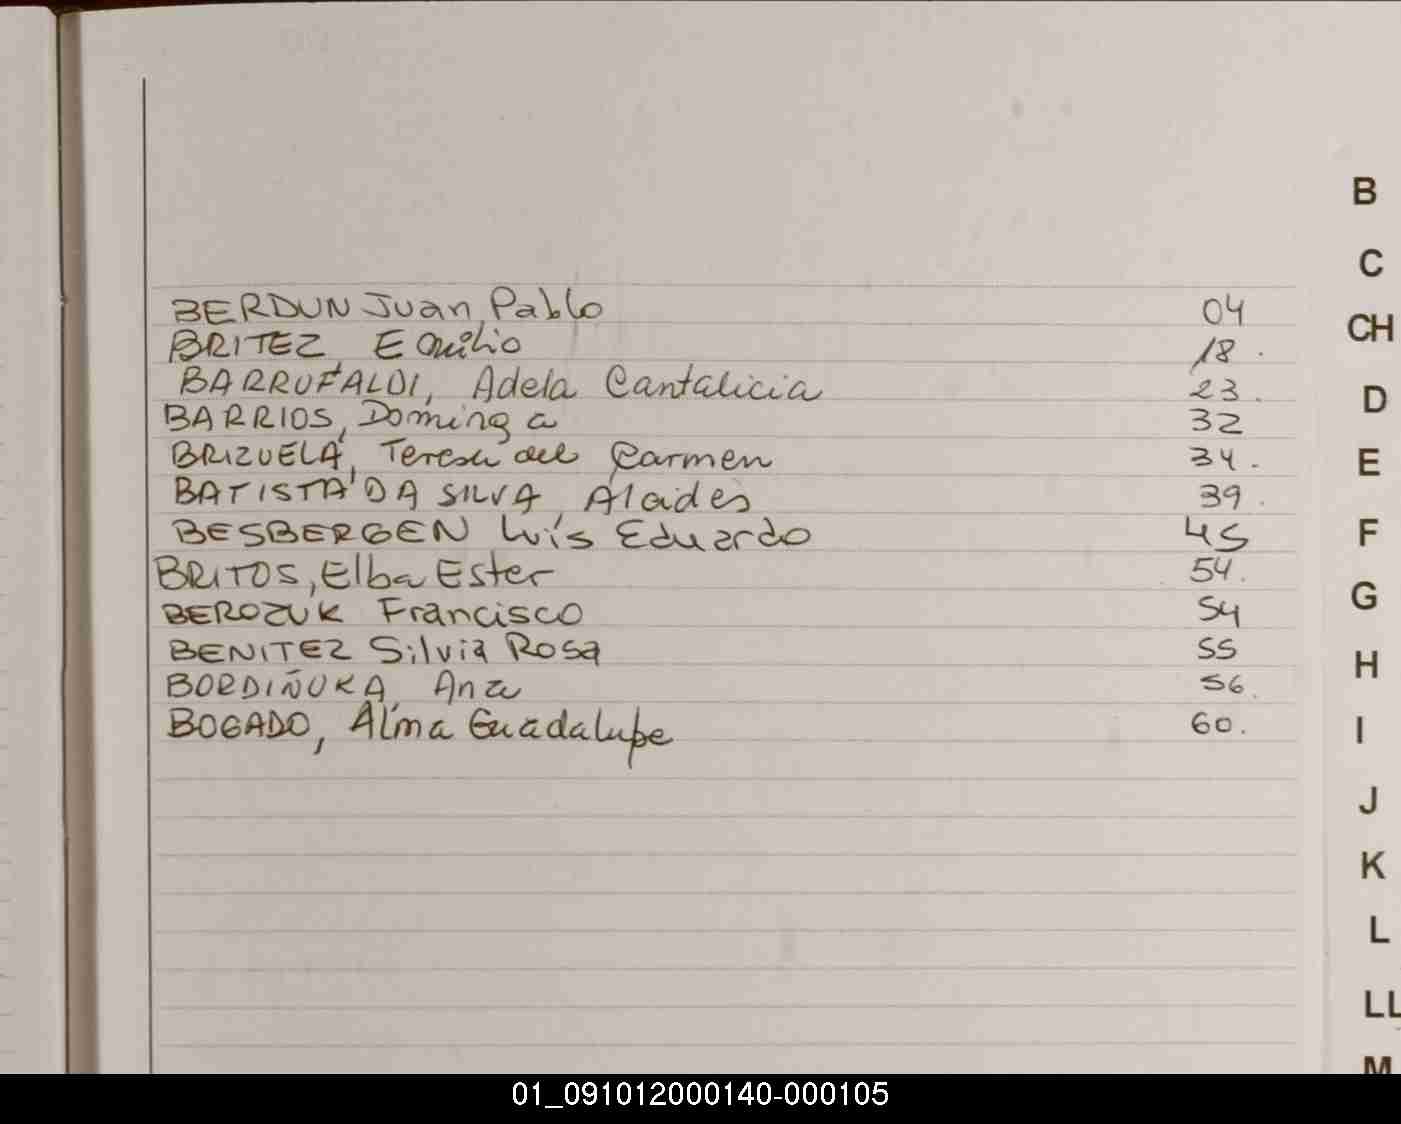 BERDUN Juan Pablo 04
BRITEZ, Emilio 18.
BARRUFALDI, Adela Cantalicia 23.
BARRIOS, Dominga 32
BRIZUELA, Teresa del Carmen 34.
BATISTA DA SILVA, Alaides 39.
BESBERGEN Luis Eduardo 45
BRITOS, Elba Ester 54.
BEROZUK Francisco 54
BENITEZ Silvia Rosa 55
BORDIÑUKA, Ana 56.
BOGADO, Alma Guadalupe 60.
B
C
CH
D
E
F
G
H
I
J
K
L
LL
M
01_091012000140-000105